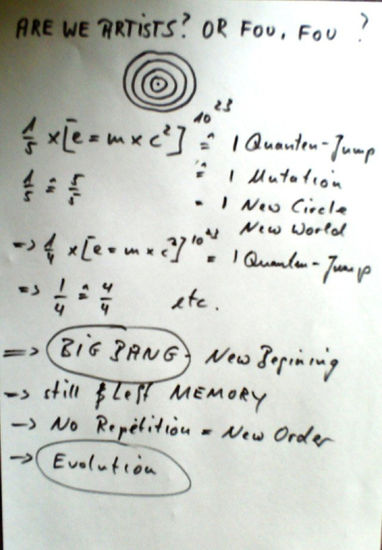 ARE WE ARTISTS? OR FOU, FOU ?
1/5 x [e = m x c²] 10²³ ≙ 1 Quanten-Jump
1/5 ≙ 5/5 ≙ 1 Mutation
= 1 New Circle
New World
=> 1/4 x [e = m x c²] 10²³ = 1 Quanten-Jump
=> 1/4 ≙ 4/4 etc.
=> BIG BANG - New Begining
-> still & Left MEMORY
-> No Repétition = New Order
-> Evolution